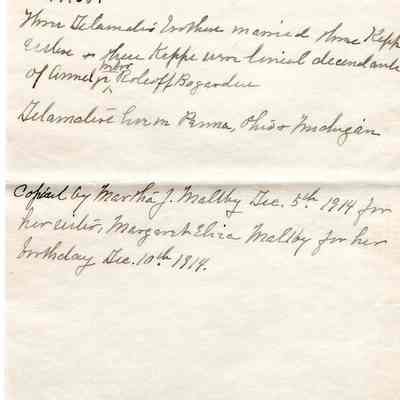 Three Delamater brothers married three Kipp
sisters & these Kipps were lineal descendants
of Anneke more Roloff Bogardus
Delamaters live in Penna, Ohio & Michigan
Copied by Martha J. Maltby Dec. 5th 1914 for
her sister, Margaret Eliza Maltby for her
birthday Dec. 10th 1914.